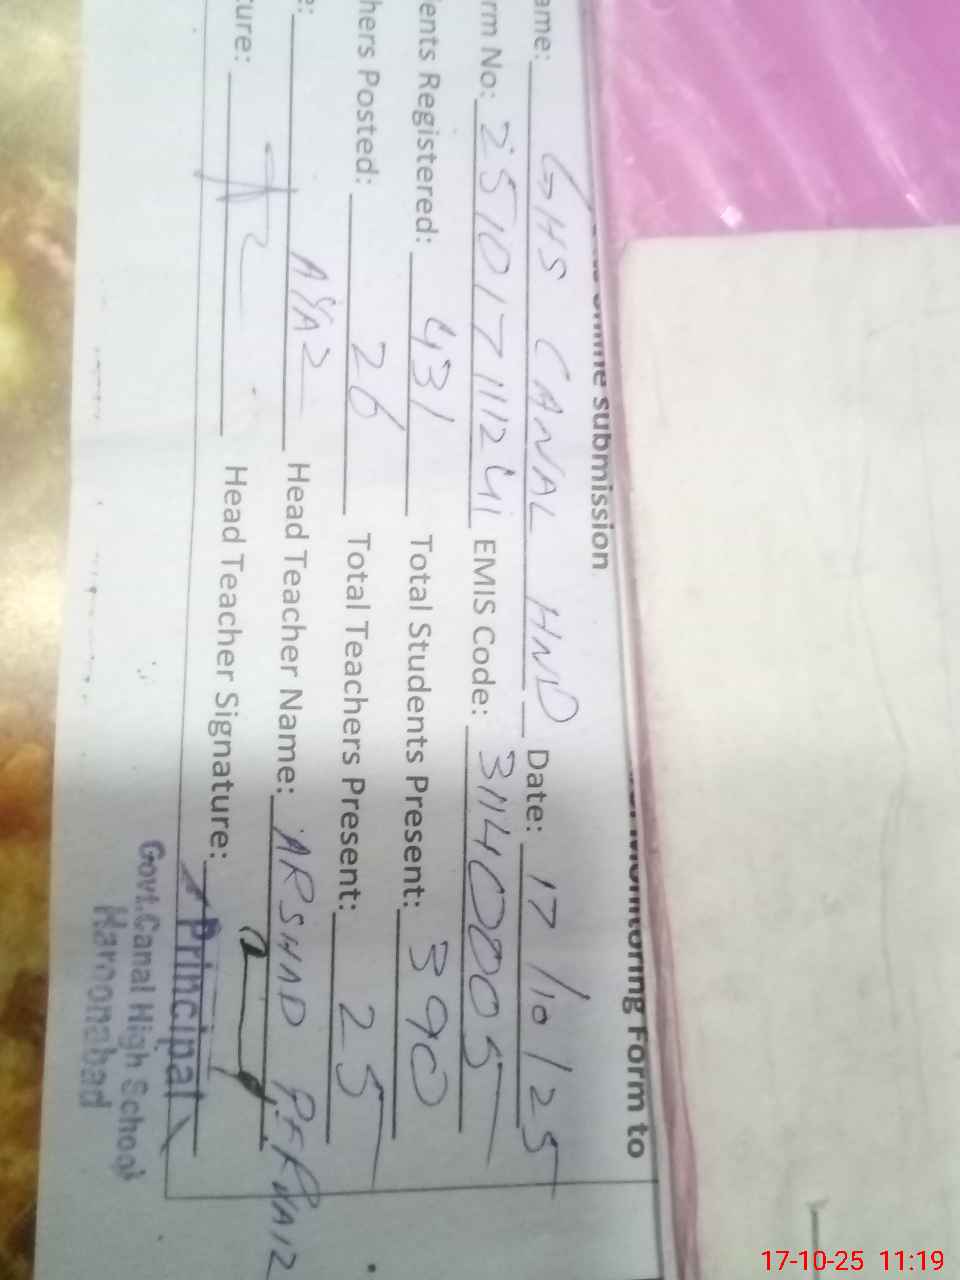 Monitoring Form to
online submission
ame: GHS CANAL HND Date: 17/10/25
rm No: 251017111241 EMIS Code: 31140005
ents Registered: 431 Total Students Present: 390
hers Posted: 26 Total Teachers Present: 25
e: AYAZ Head Teacher Name: ARSHAD PERVAIZ
ture: Head Teacher Signature:
Principal
Govt.Canal High School
Haroonabad
17-10-25 11:19